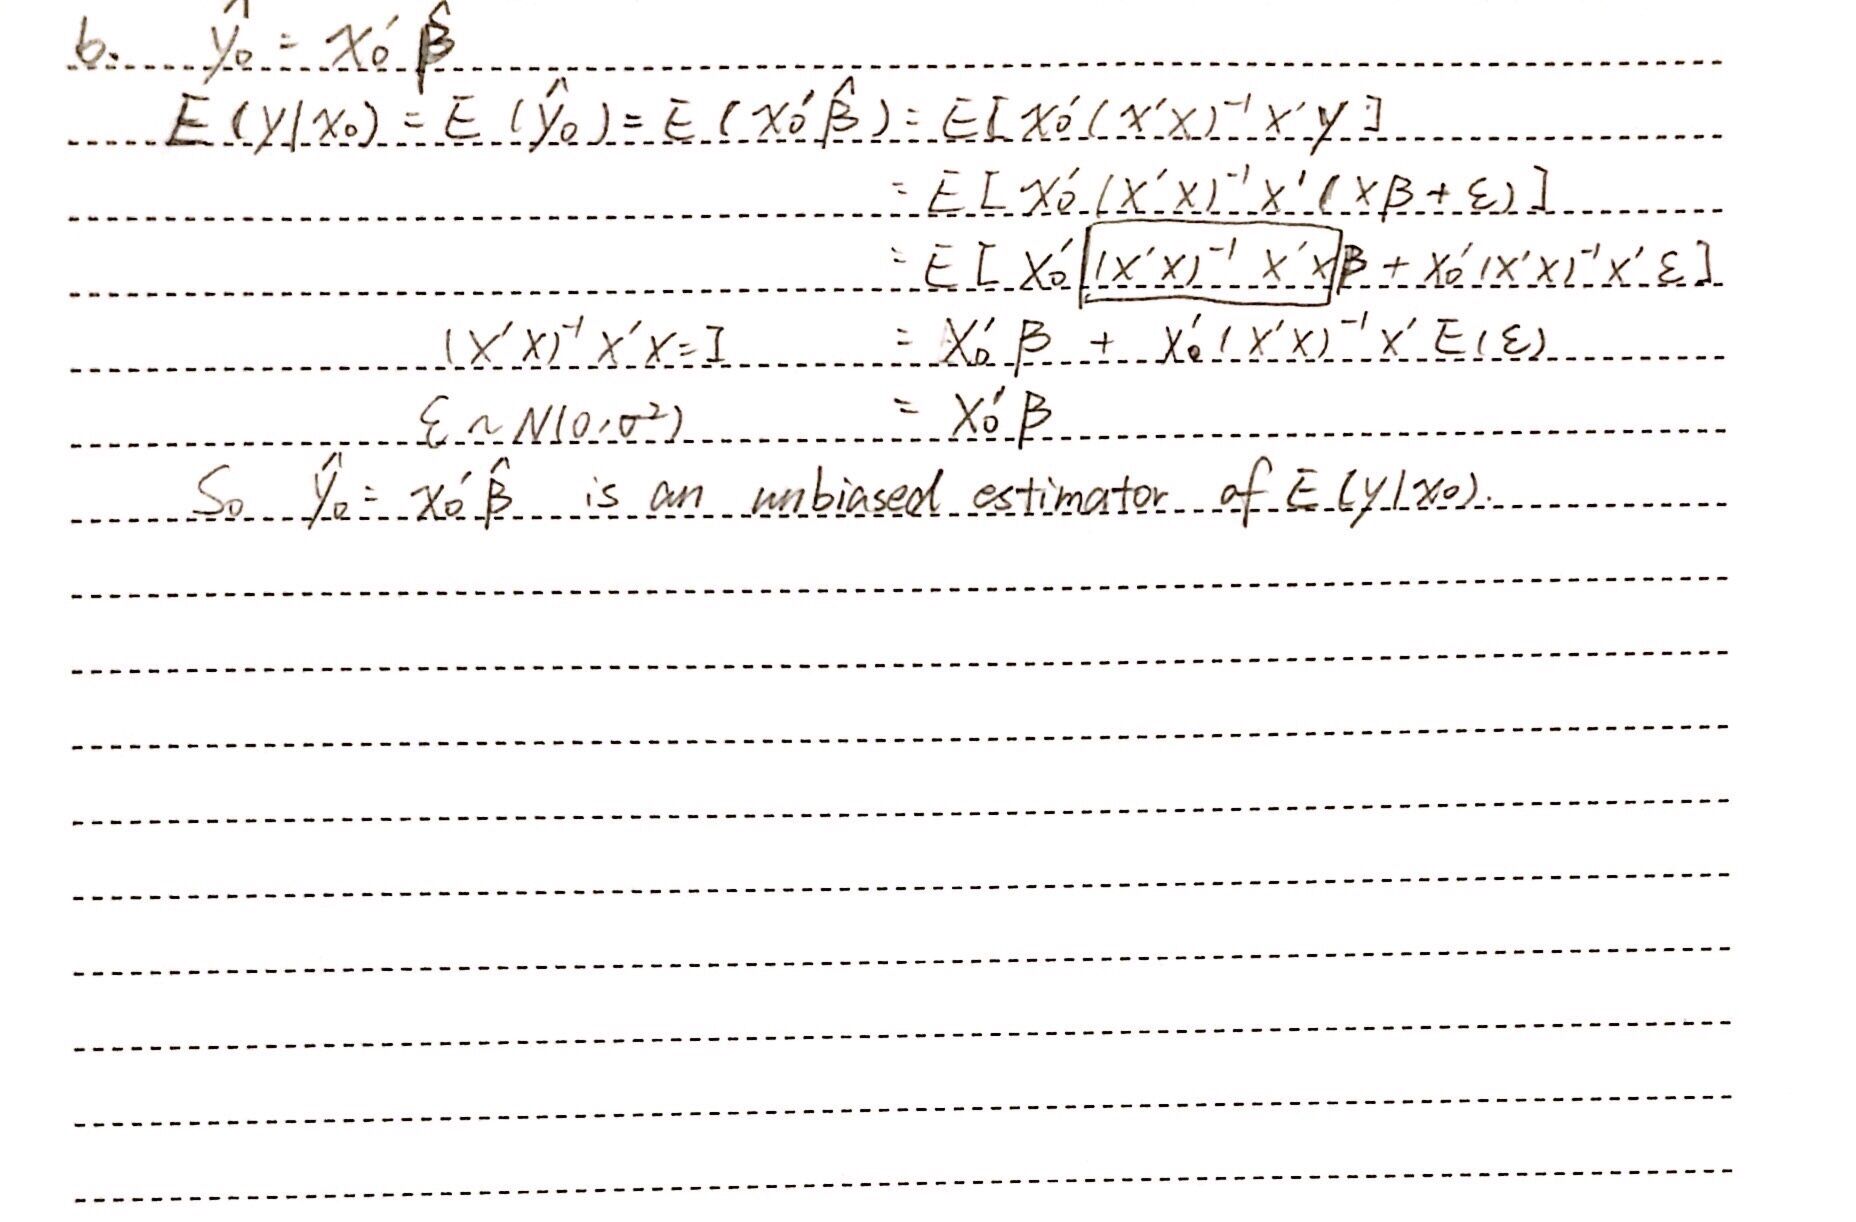 b. ŷ₀ = x₀′ β̂
E(y|x₀) = E(ŷ₀) = E(x₀′β̂) = E[x₀′(X′X)⁻¹X′y]
= E[x₀′(X′X)⁻¹X′(Xβ+ε)]
= E[x₀′(X′X)⁻¹X′Xβ + x₀′(X′X)⁻¹X′ε]
(X′X)⁻¹X′X=I = x₀′β + x₀′(X′X)⁻¹X′E(ε)
ε ~ N(0,σ²) = x₀′β
So ŷ₀ = x₀′β̂ is an unbiased estimator of E(y|x₀).